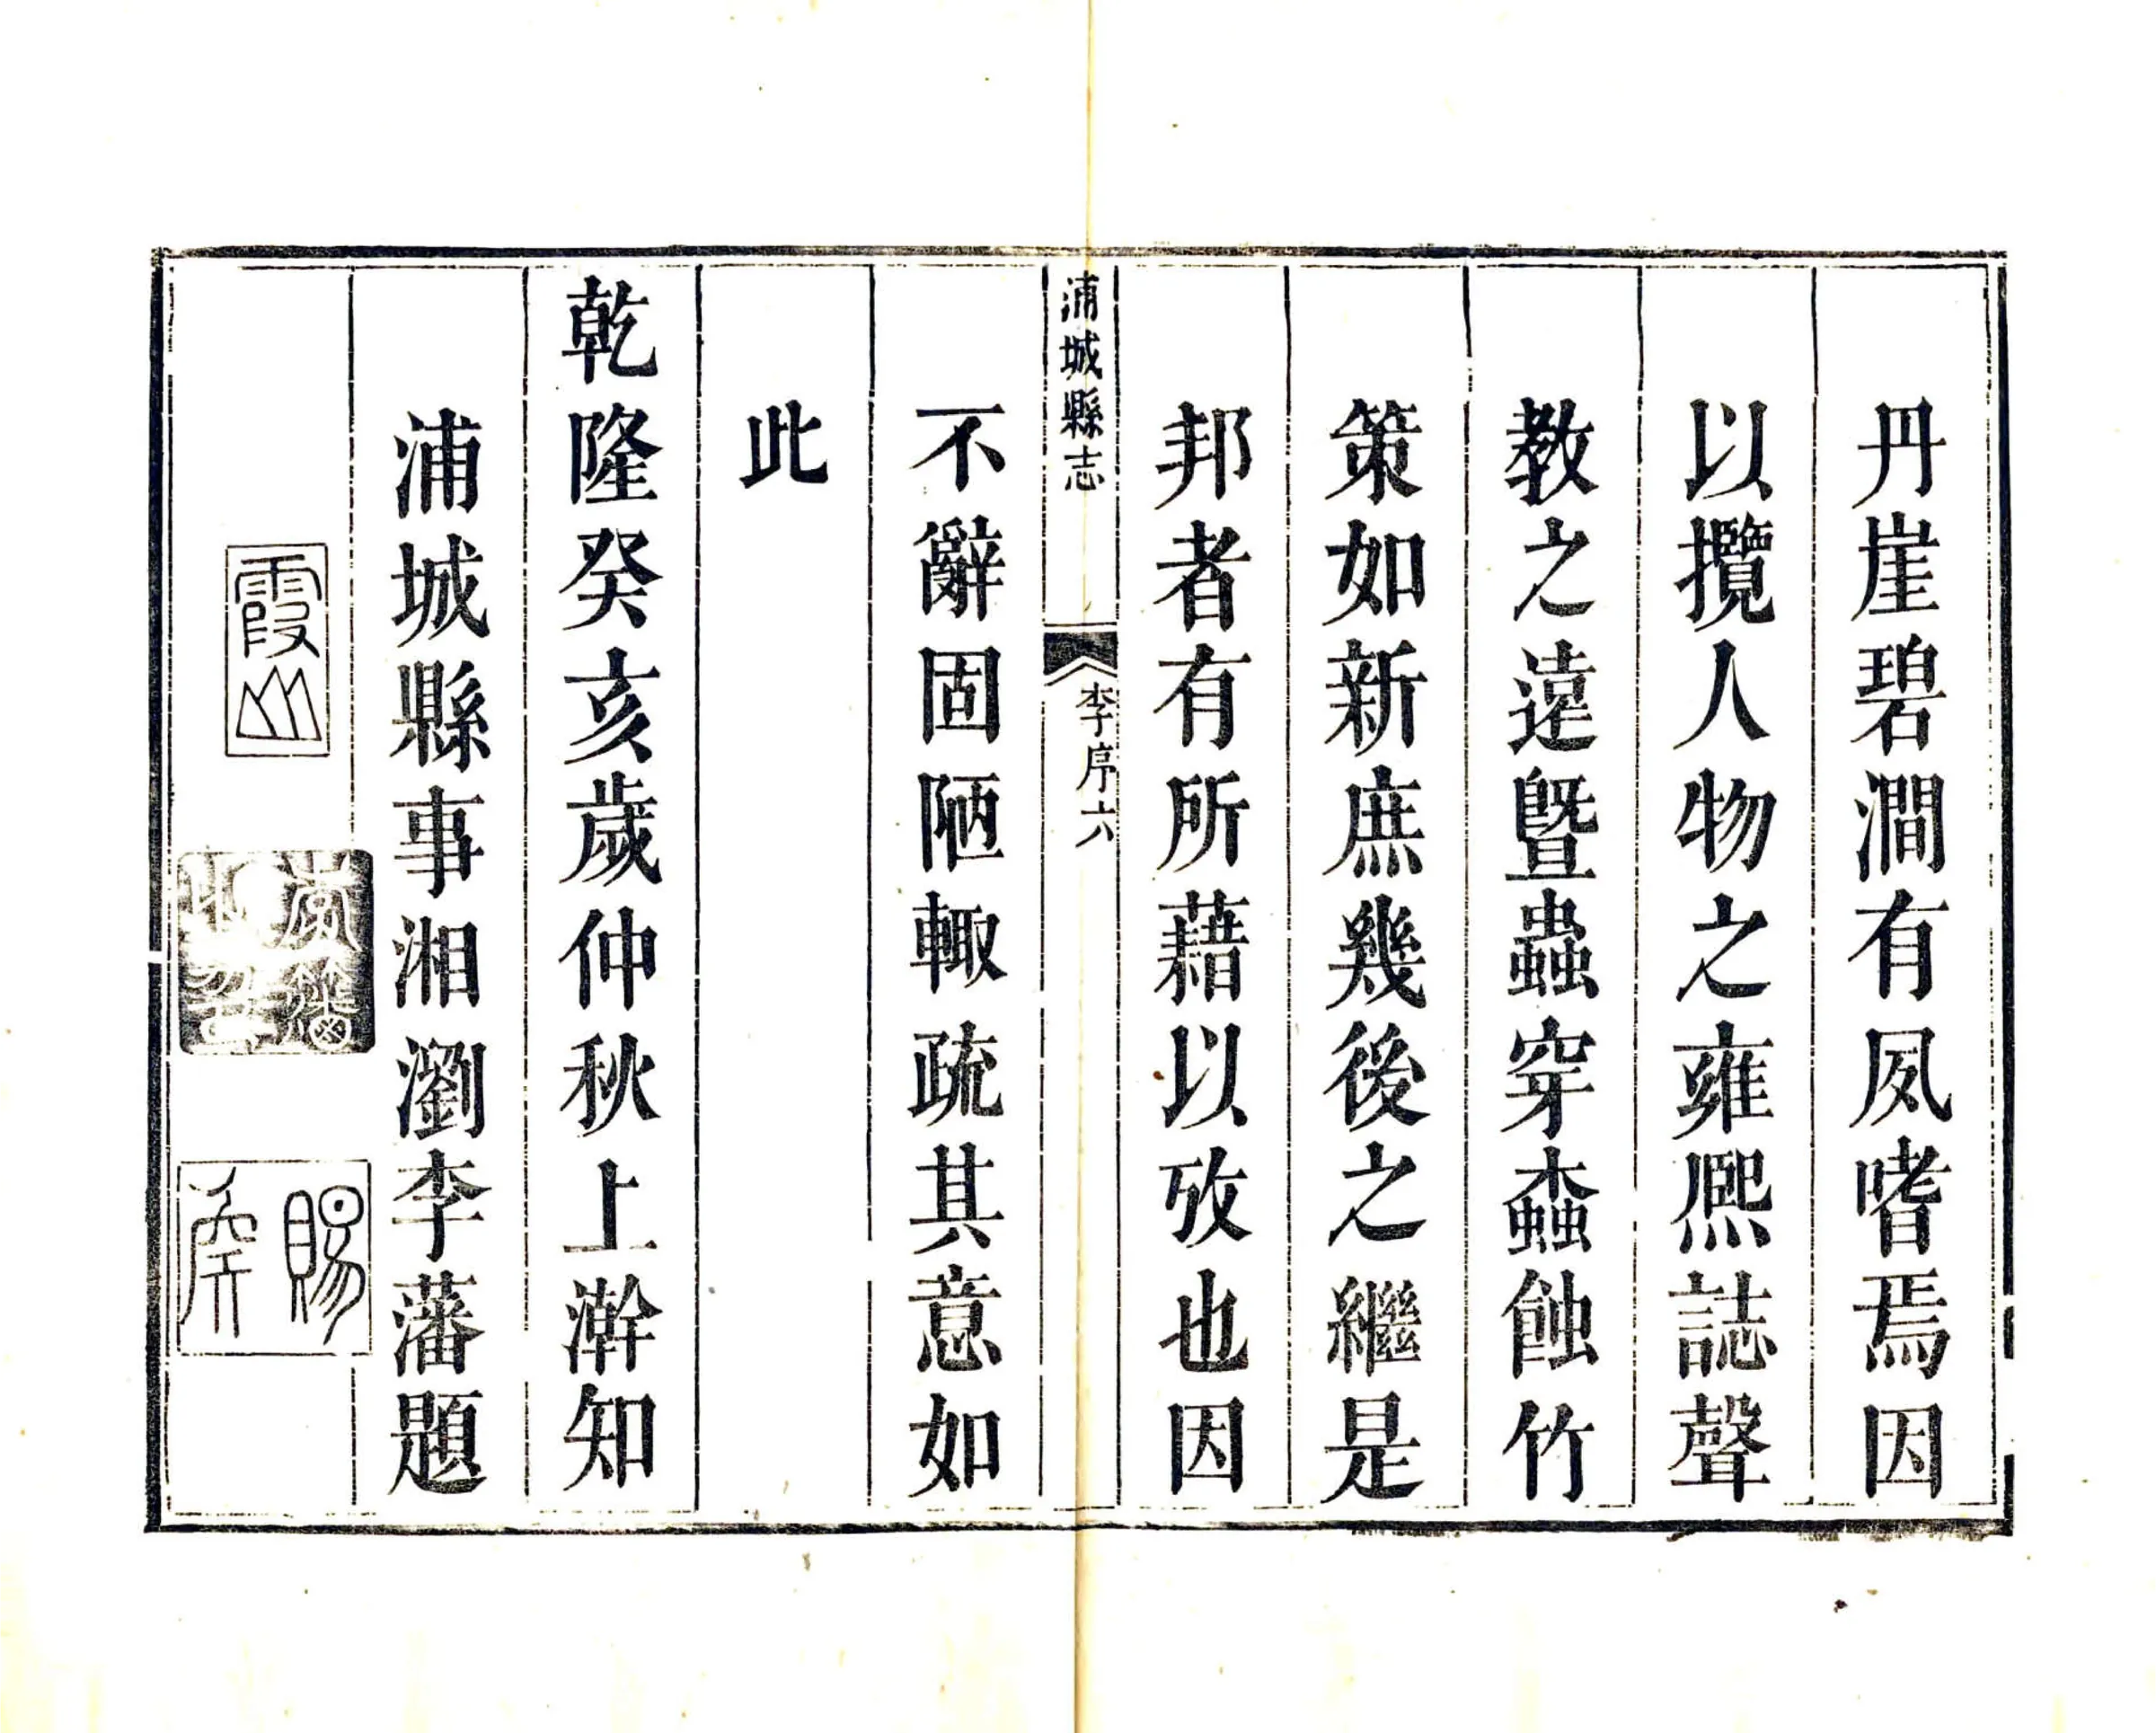 丹崖碧澗有夙嗜焉因
以攬人物之雍熙誌聲
教之遠曁蟲穿蠹蝕竹
策如新庶幾後之繼是
邦者有所藉以攷也因
浦城縣志
李序六
不辭固陋輙疏其意如
此
乾隆癸亥歲仲秋上澣知
浦城縣事湘瀏李藩題
霞山